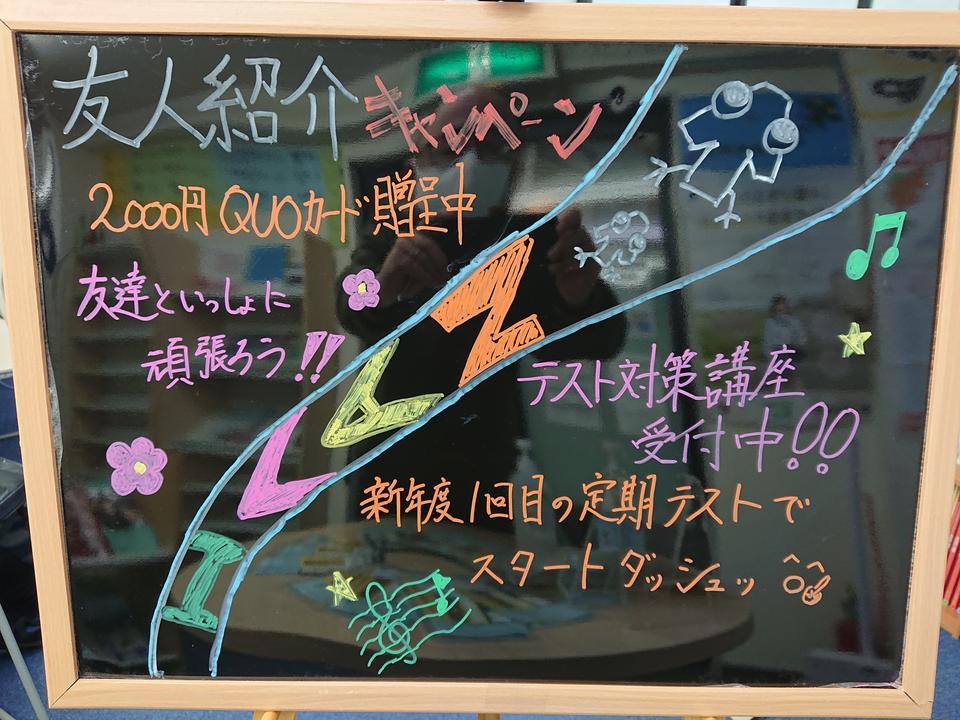 友人紹介キャンペーン
2000円QUOカード贈呈中
友達といっしょに
頑張ろう!!
テスト対策講座
受付中!!
新年度1回目の定期テストで
スタートダッシュッ